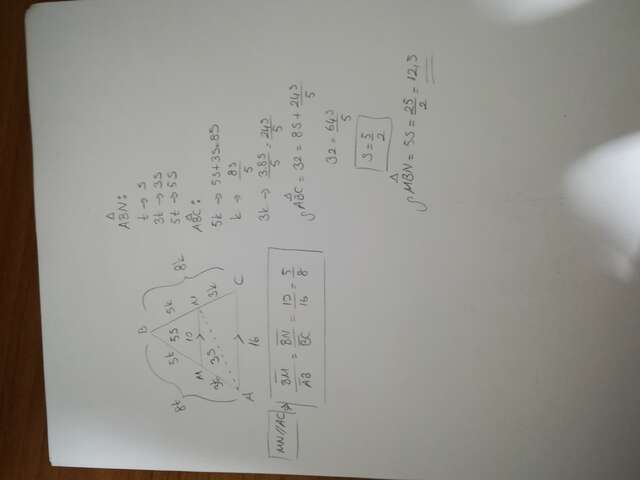 B
8t
5t
5S
5k
8k
10
M
N
3t
3S
3k
A
16
C
MN//AC ⇒ BM/AB = BN/BC = 10/16 = 5/8
ABN:
t → S
3t → 3S
5t → 5S
ABC:
5k → 5S+3S=8S
k → 8S/5
3k → 3.8S/5 = 24S/5
ABC = 32 = 8S + 24S/5
32 = 64S/5
S = 5/2
MBN = 5S = 25/2 = 12,5